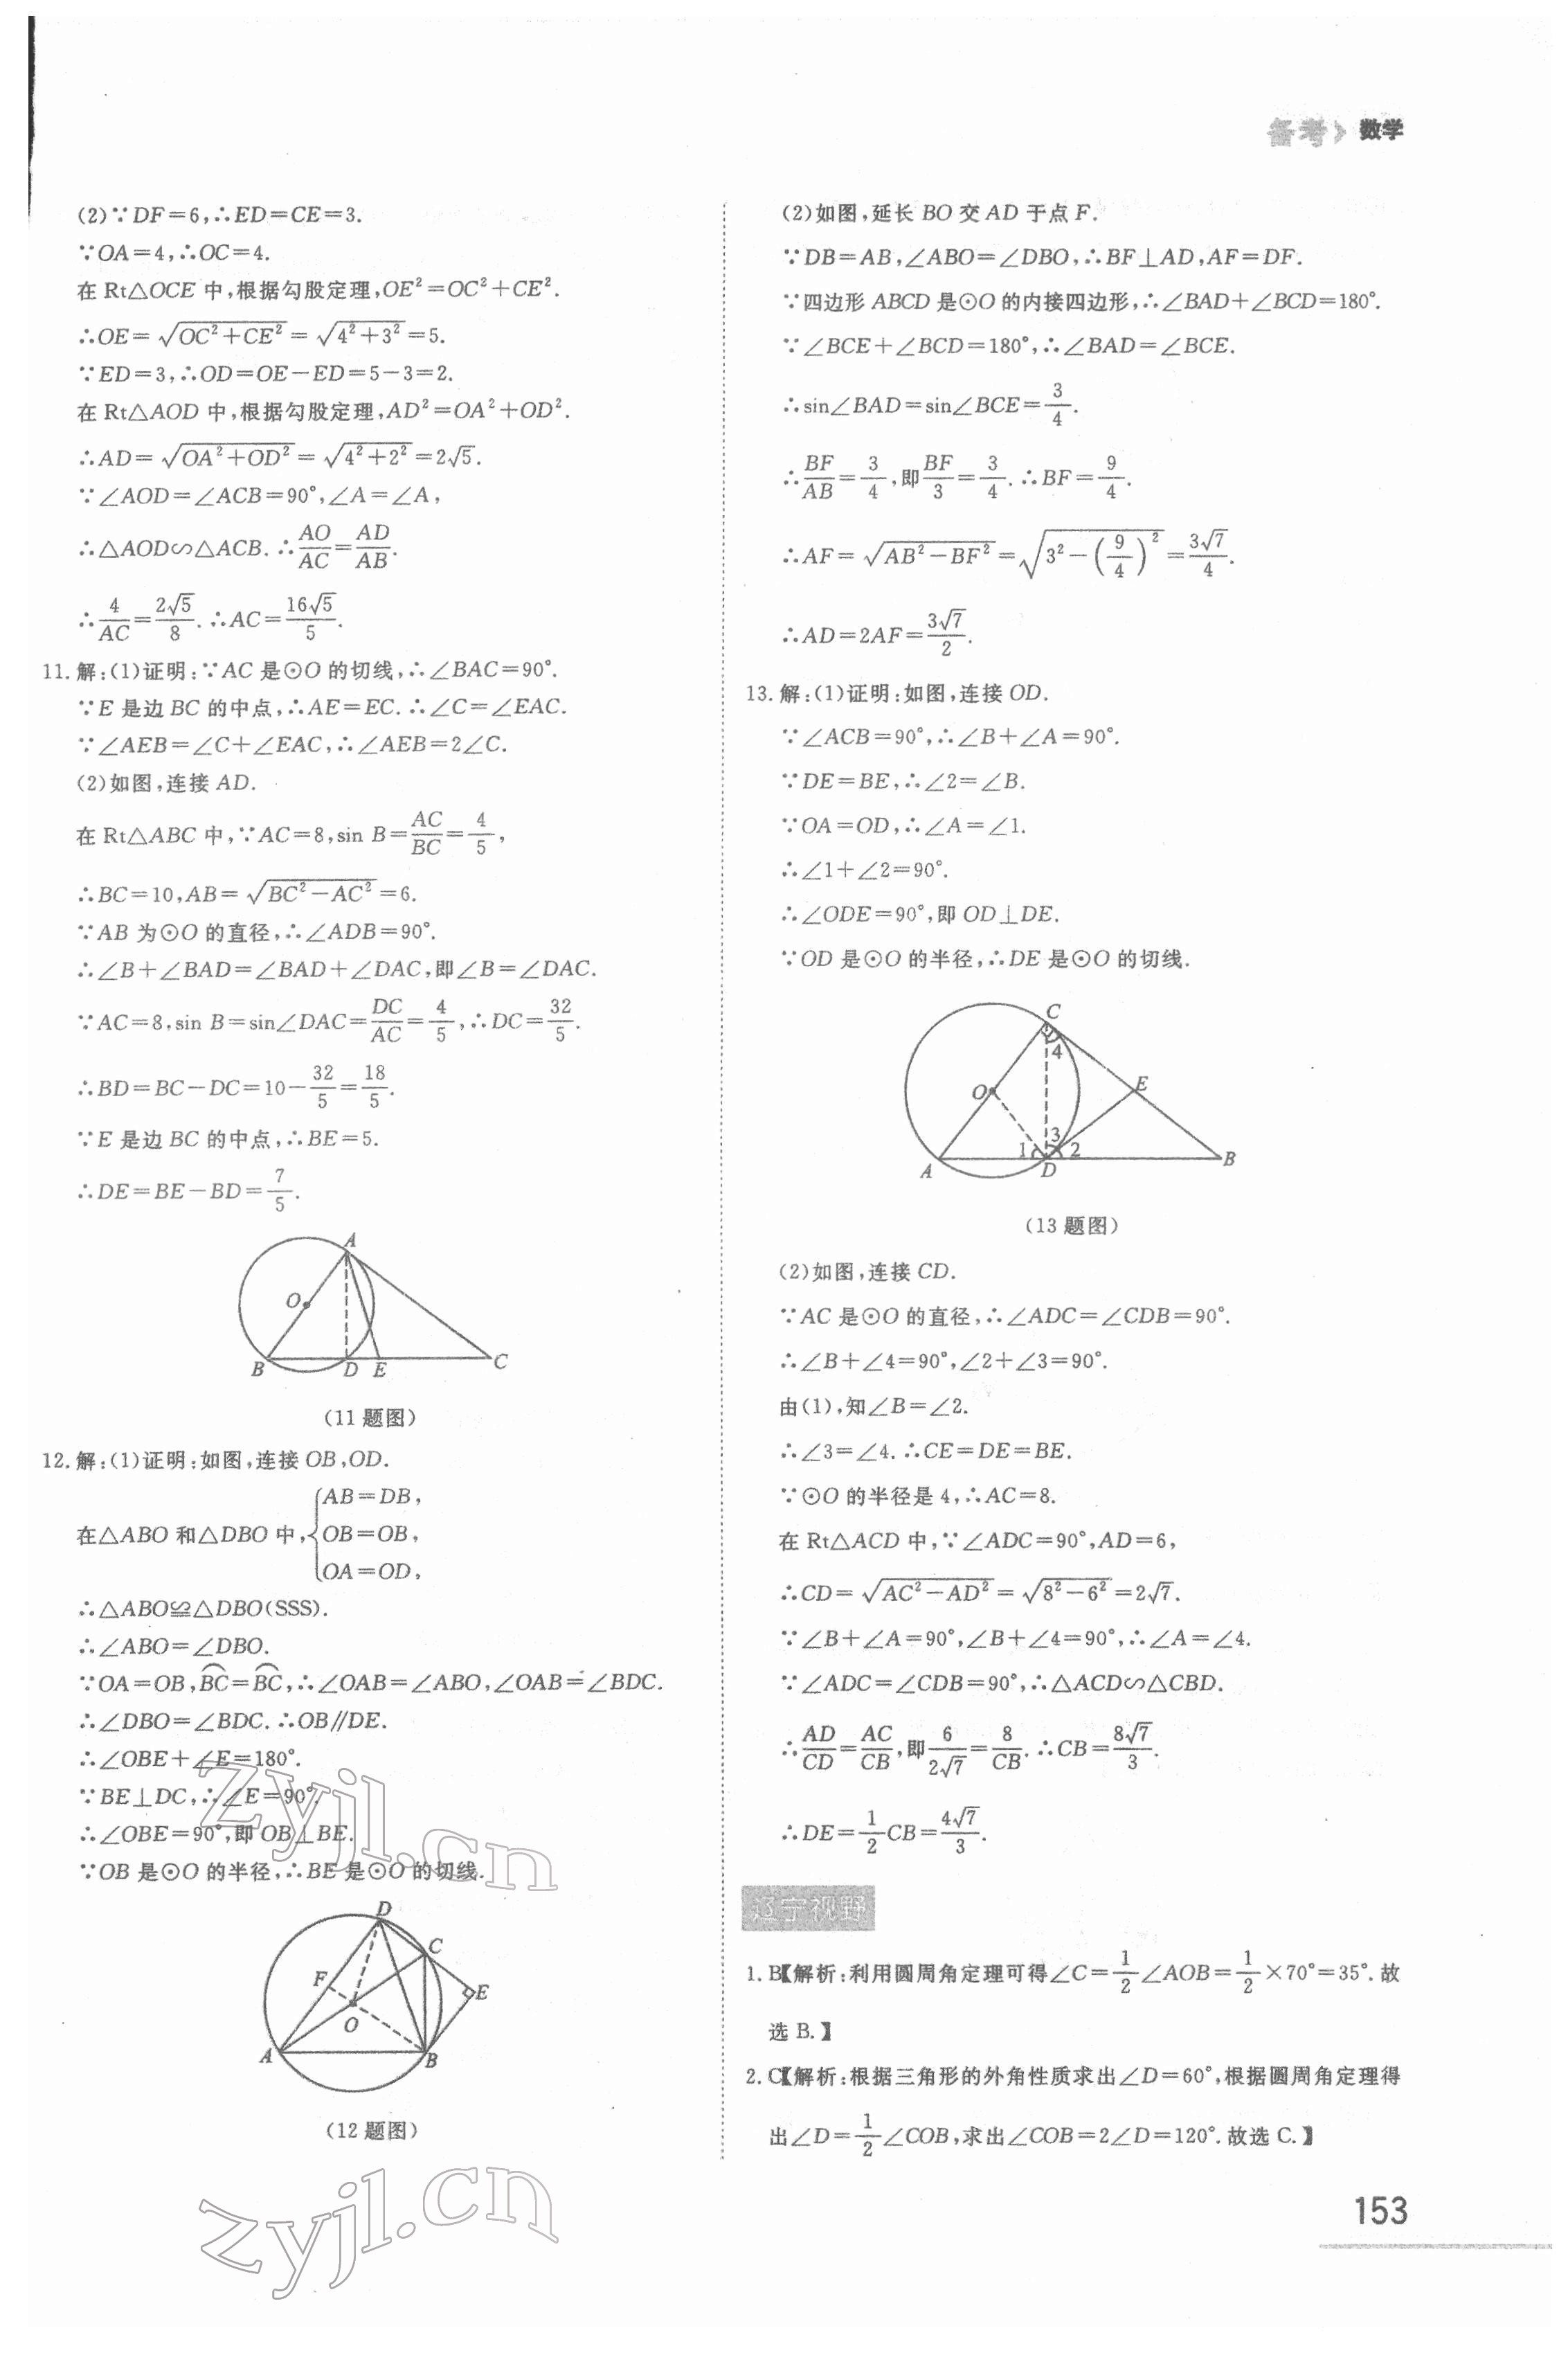 备考〉数学
(2)∵DF=6,∴ED=CE=3.
∵OA=4,∴OC=4.
在 Rt△OCE 中,根据勾股定理,OE²=OC²+CE².
∴OE=√(OC²+CE²)=√(4²+3²)=5.
∵ED=3,∴OD=OE-ED=5-3=2.
在 Rt△AOD 中,根据勾股定理,AD²=OA²+OD².
∴AD=√(OA²+OD²)=√(4²+2²)=2√5.
∵∠AOD=∠ACB=90°,∠A=∠A,
∴△AOD∽△ACB.∴AO/AC=AD/AB.
∴4/AC=2√5/8.∴AC=16√5/5.
11.解:(1)证明:∵AC 是⊙O 的切线,∴∠BAC=90°.
∵E 是边 BC 的中点,∴AE=EC.∴∠C=∠EAC.
∵∠AEB=∠C+∠EAC,∴∠AEB=2∠C.
(2)如图,连接 AD.
在 Rt△ABC 中,∵AC=8,sin B=AC/BC=4/5,
∴BC=10,AB=√(BC²-AC²)=6.
∵AB 为⊙O 的直径,∴∠ADB=90°.
∴∠B+∠BAD=∠BAD+∠DAC,即∠B=∠DAC.
∵AC=8,sin B=sin∠DAC=DC/AC=4/5,∴DC=32/5.
∴BD=BC-DC=10-32/5=18/5.
∵E 是边 BC 的中点,∴BE=5.
∴DE=BE-BD=7/5.
A
O
B D E C
(11 题图)
12.解:(1)证明:如图,连接 OB,OD.
在△ABO 和△DBO 中,{AB=DB,
OB=OB,
OA=OD,
∴△ABO≌△DBO(SSS).
∴∠ABO=∠DBO.
∵OA=OB,⌒BC=⌒BC,∴∠OAB=∠ABO,∠OAB=∠BDC.
∴∠DBO=∠BDC.∴OB∥DE.
∴∠OBE+∠E=180°.
∵BE⊥DC,∴∠E=90°.
∴∠OBE=90°,即 OB⊥BE.
∵OB 是⊙O 的半径,∴BE 是⊙O 的切线.
zyjl.cn
D
C
F
E
O
A B
(12 题图)
zyjl.cn
(2)如图,延长 BO 交 AD 于点 F.
∵DB=AB,∠ABO=∠DBO,∴BF⊥AD,AF=DF.
∵四边形 ABCD 是⊙O 的内接四边形,∴∠BAD+∠BCD=180°.
∵∠BCE+∠BCD=180°,∴∠BAD=∠BCE.
∴sin∠BAD=sin∠BCE=3/4.
∴BF/AB=3/4,即BF/3=3/4.∴BF=9/4.
∴AF=√(AB²-BF²)=√(3²-(9/4)²)=3√7/4.
∴AD=2AF=3√7/2.
13.解:(1)证明:如图,连接 OD.
∵∠ACB=90°,∴∠B+∠A=90°.
∵DE=BE,∴∠2=∠B.
∵OA=OD,∴∠A=∠1.
∴∠1+∠2=90°.
∴∠ODE=90°,即 OD⊥DE.
∵OD 是⊙O 的半径,∴DE 是⊙O 的切线.
C
4
O E
3
1 2
A D B
(13 题图)
(2)如图,连接 CD.
∵AC 是⊙O 的直径,∴∠ADC=∠CDB=90°.
∴∠B+∠4=90°,∠2+∠3=90°.
由(1),知∠B=∠2.
∴∠3=∠4.∴CE=DE=BE.
∵⊙O 的半径是 4,∴AC=8.
在 Rt△ACD 中,∵∠ADC=90°,AD=6,
∴CD=√(AC²-AD²)=√(8²-6²)=2√7.
∵∠B+∠A=90°,∠B+∠4=90°,∴∠A=∠4.
∵∠ADC=∠CDB=90°,∴△ACD∽△CBD.
∴AD/CD=AC/CB,即6/2√7=8/CB.∴CB=8√7/3.
∴DE=1/2CB=4√7/3.
辽宁视野
1.B【解析:利用圆周角定理可得∠C=1/2∠AOB=1/2×70°=35°.故
选 B.】
2.C【解析:根据三角形的外角性质求出∠D=60°,根据圆周角定理得
出∠D=1/2∠COB,求出∠COB=2∠D=120°.故选 C.】
153